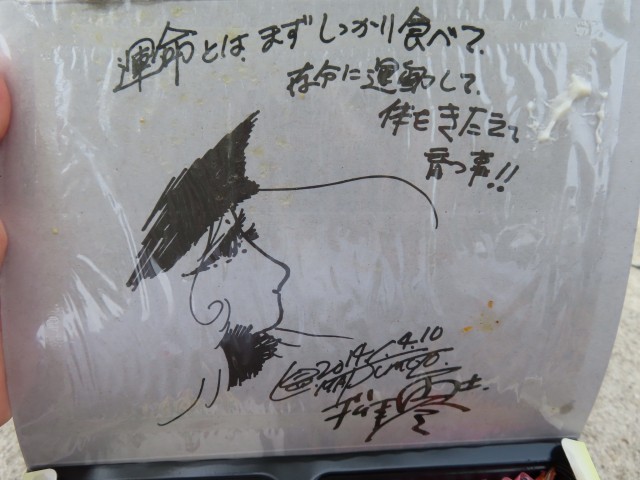 運命とは、まずしっかり食べて、
存分に運動して、
体をきたえて
育つ事!!
2014.4.10